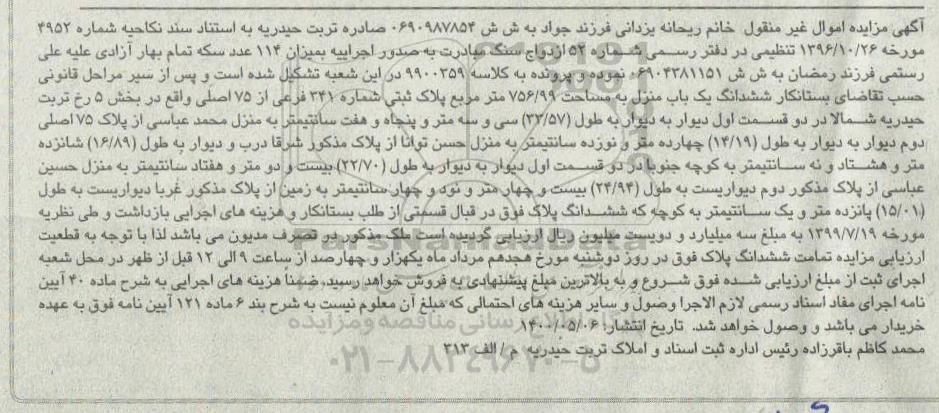 آگهی مزایده اموال غیر منقول خانم ریحانه یزدانی فرزند جواد به ش ش ۰۶۹۰۹۸۷۸۵۴ صادره تربت حیدریه به استناد سند نکاحیه شماره ۴۹۵۲
مورخه ۱۳۹۶/۱۰/۲۶ تنظیمی در دفتر رسمی شماره ۵۲ ازدواج سنگ مبادرت به صدور اجراییه بمیزان ۱۱۴ عدد سکه تمام بهار آزادی علیه علی
رستمی فرزند رمضان به ش ش ۰۶۹۰۴۳۸۱۱۵۱ نموده و پرونده به کلاسه ۹۹۰۰۳۵۹ در این شعبه تشکیل شده است و پس از سیر مراحل قانونی
حسب تقاضای بستانکار ششدانگ یک باب منزل به مساحت ۷۵۶/۹۹ متر مربع پلاک ثبتی شماره ۳۴۱ فرعی از ۷۵ اصلی واقع در بخش ۵ رخ تربت
حیدریه شمالا در دو قسمت اول دیوار به دیوار به طول (۳۳/۵۷) سی و سه متر و پنجاه و هفت سانتیمتر به منزل محمد عباسی از پلاک ۷۵ اصلی
دوم دیوار به دیوار به طول (۱۴/۱۹) چهارده متر و نوزده سانتیمتر به منزل حسن توانا از پلاک مذکور شرقا درب و دیوار به طول (۱۶/۸۹) شانزده
متر و هشتاد و نه سانتیمتر به کوچه جنوبا در دو قسمت اول دیوار به دیوار به طول (۲۲/۷۰) بیست و دو متر و هفتاد سانتیمتر به منزل حسین
عباسی از پلاک مذکور دوم دیواریست به طول (۲۴/۹۴) بیست و چهار متر و نود و چهار سانتیمتر به زمین از پلاک مذکور غربا دیواریست به طول
(۱۵/۰۱) پانزده متر و یک سانتیمتر به کوچه که ششدانگ پلاک فوق در قبال قسمتی از طلب بستانکار و هزینه های اجرایی بازداشت و طی نظریه
مورخه ۱۳۹۹/۷/۱۹ به مبلغ سه میلیارد و دویست میلیون ریال ارزیابی گردیده است ملک مذکور در تصرف مدیون می باشد لذا با توجه به قطعیت
ارزیابی مزایده تمامت ششدانگ پلاک فوق در روز دوشنبه مورخ هجدهم مرداد ماه یکهزار و چهارصد از ساعت ۹ الی ۱۲ قبل از ظهر در محل شعبه
اجرای ثبت از مبلغ ارزیابی شده فوق شروع و به بالاترین مبلغ پیشنهادی به فروش خواهد رسید. ضمناً هزینه های اجرایی به شرح ماده ۴۰ آیین
نامه اجرای مفاد اسناد رسمی لازم الاجرا وصول و سایر هزینه های احتمالی که مبلغ آن معلوم نیست به شرح بند ۶ ماده ۱۲۱ آیین نامه فوق به عهده
خریدار می باشد و وصول خواهد شد. تاریخ انتشار: ۱۴۰۰/۰۵/۰۶
محمد کاظم باقرزاده رئیس اداره ثبت اسناد و املاک تربت حیدریه م / الف ۳۱۳
ParsNamadData
رسانی مناقصه و مزایده
۰۲۱-۸۸۳۴۹۶۷۰-۵